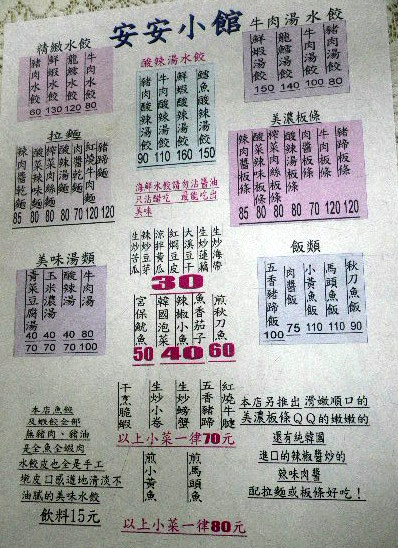 安安小館
精緻水餃
豬肉水餃 60
鮮蝦水餃 130
龍鱈水餃 120
牛肉水餃 80
酸辣湯水餃
豬肉酸辣湯餃 90
牛肉酸辣湯餃 110
鮮蝦酸辣湯餃 160
鱈魚酸辣湯餃 150
牛肉湯水餃
鮮蝦湯餃 150
龍鱈湯餃 140
牛肉湯餃 100
豬肉湯餃 80
拉麵
辣肉醬乾麵 85
酸菜辣味麵 80
榨菜肉絲麵 80
酸辣湯麵 80
肉醬乾麵 70
紅燒牛肉麵 120
豬蹄麵 120
海鮮水餃請勿沾醬油
只沾醋吃
美味
美濃板條
辣肉醬板條 85
酸菜辣板條 80
榨菜肉絲板條 80
酸辣湯板條 80
肉醬板條 70
牛肉板條 120
豬蹄板條 120
美味湯類
青菜豆腐湯 40 70
玉米濃湯 40 70
酸辣湯 40 70
牛肉湯 80 100
生炒苦瓜
辣炒豆芽
涼拌黃瓜
紅燜豆皮
大溪豆干
生炒蓮藕
生炒海帶
30
宮保魷魚
50
韓國泡菜
辣椒小魚
魚香茄子
40
煎秋刀魚
60
飯類
五香豬蹄飯 100
肉醬飯 75
小黃魚飯 110
馬頭魚飯 110
秋刀魚飯 90
干烹脆蝦
生炒小卷
生炒螃蟹
五香豬蹄
紅燒牛腱
以上小菜一律70元
煎小黃魚
煎馬頭魚
以上小菜一律80元
本店魚餃
及蝦餃全部
無豬肉、豬油
是全魚全蝦肉
水餃皮也全是手工
口感道地清淡不
油膩的美味水餃
飲料15元
本店另推出滑嫩順口的
美濃板條QQ的嫩嫩的
還有純韓國
進口的辣椒醬炒的
辣味肉醬
配拉麵或板條好吃！